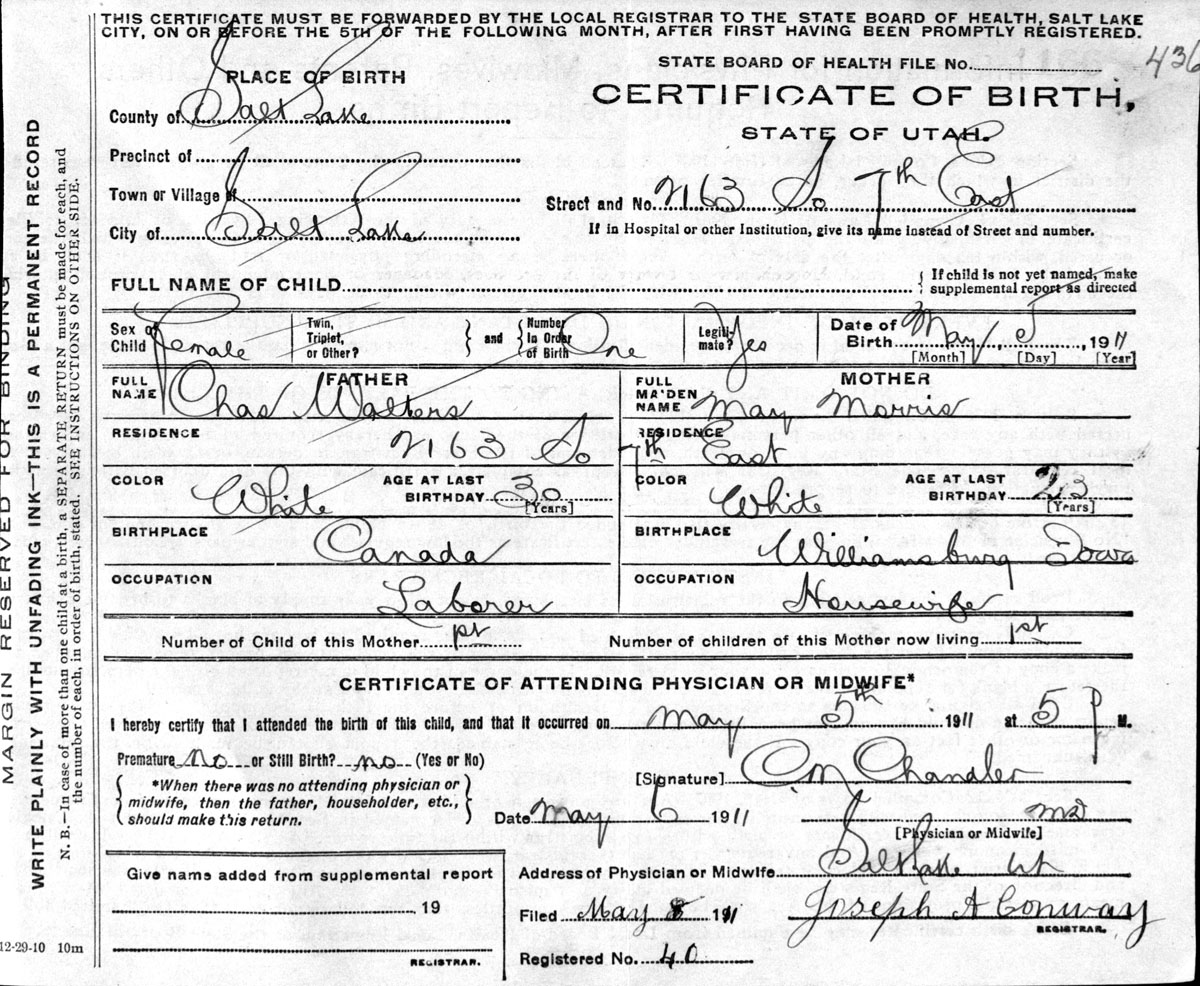 THIS CERTIFICATE MUST BE FORWARDED BY THE LOCAL REGISTRAR TO THE STATE BOARD OF HEALTH, SALT LAKE
CITY, ON OR BEFORE THE 5TH OF THE FOLLOWING MONTH, AFTER FIRST HAVING BEEN PROMPTLY REGISTERED.
PLACE OF BIRTH
STATE BOARD OF HEALTH FILE No. 436
CERTIFICATE OF BIRTH,
STATE OF UTAH.
County of Salt Lake
Precinct of
Town or Village of
Street and No. 2163 So 7th East
City of Salt Lake
If in Hospital or other Institution, give its name instead of Street and number.
FULL NAME OF CHILD
{ If child is not yet named, make
supplemental report as directed
Sex of Child Female
Twin, Triplet, or Other? } and { Number In Order of Birth One
Legiti-mate? Yes
Date of Birth May 5, 1911
[Month] [Day] [Year]
FATHER
FULL NAME Chas Walters
MOTHER
FULL MAIDEN NAME May Morris
RESIDENCE 2163 So
RESIDENCE 7th East
COLOR White AGE AT LAST BIRTHDAY 30 [Years]
COLOR White AGE AT LAST BIRTHDAY 23 [Years]
BIRTHPLACE Canada
BIRTHPLACE Williamsburg Iowa
OCCUPATION Laborer
OCCUPATION Housewife
Number of Child of this Mother 1st Number of children of this Mother now living 1st
CERTIFICATE OF ATTENDING PHYSICIAN OR MIDWIFE*
I hereby certify that I attended the birth of this child, and that it occurred on May 5th 1911 at 5 P M.
Premature No or Still Birth? no (Yes or No)
[Signature] Chandler
{ *When there was no attending physician or
midwife, then the father, householder, etc.,
should make this return. }
Date May 6 1911
MD
[Physician or Midwife]
Give name added from supplemental report
19
REGISTRAR.
Address of Physician or Midwife Salt Lake Ut
Filed May 8 1911 Joseph A Conway
REGISTRAR.
Registered No. 40
12-29-10 10m
MARGIN RESERVED FOR BINDING
WRITE PLAINLY WITH UNFADING INK—THIS IS A PERMANENT RECORD
N. B.—In case of more than one child at a birth, a SEPARATE RETURN must be made for each, and
the number of each, in order of birth, stated. SEE INSTRUCTIONS ON OTHER SIDE.